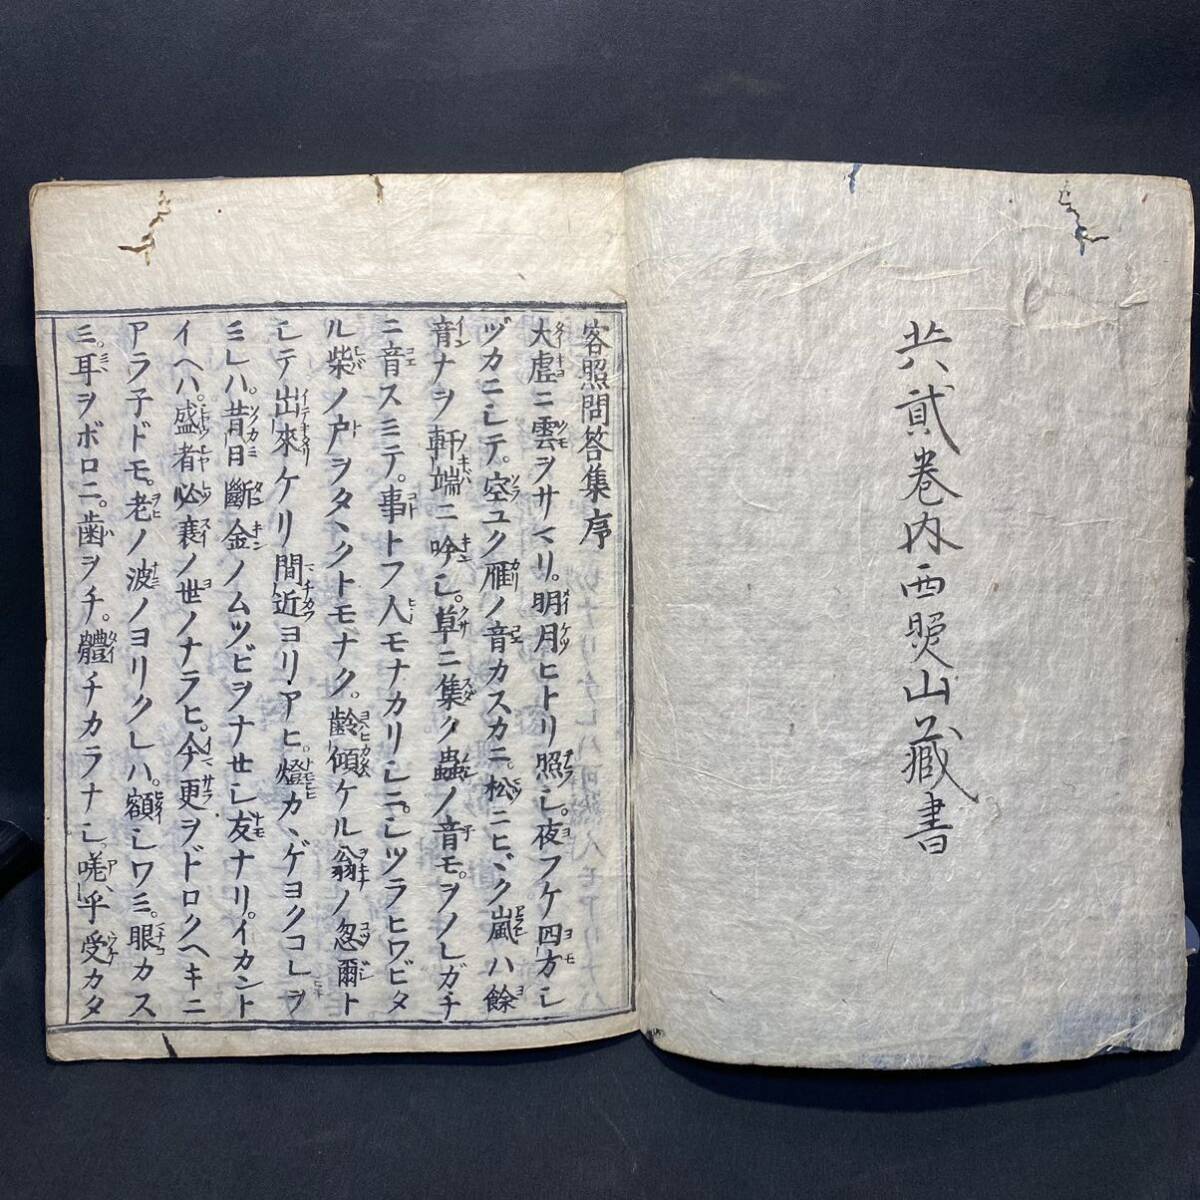 共貳巻内西照山藏書
客照問答集序
大虚ニ雲ヲサマリ。明月ヒトリ照シ。夜フケ四方シ
ヅカニシテ。空ユク雁ノ音カスカニ。松ニヒヾク嵐ハ餘
音ナヲ軒端ニ吟シ。草ニ集ク蟲ノ音モ。ヲノレガチ
ニ音スミテ。事トフ人モナカリシニ。シツラヒワビタ
ル柴ノ戸ヲタヽクトモナク。齡傾ケル翁ノ忽爾ト
シテ出來ケリ間近ヨリアヒ。燈カヽゲヨクコレヲ
ミレハ。昔日斷金ノムツビヲナセシ友ナリ。イカント
イヘハ。盛者必衰ノ世ノナラヒ。今更ヲドロクヘキニ
アラ子ドモ。老ノ波ノヨリクレハ。額シワミ。眼カス
ミ。耳ヲボロニ。歯ヲチ。體チカラナシ。嗟乎受カタ